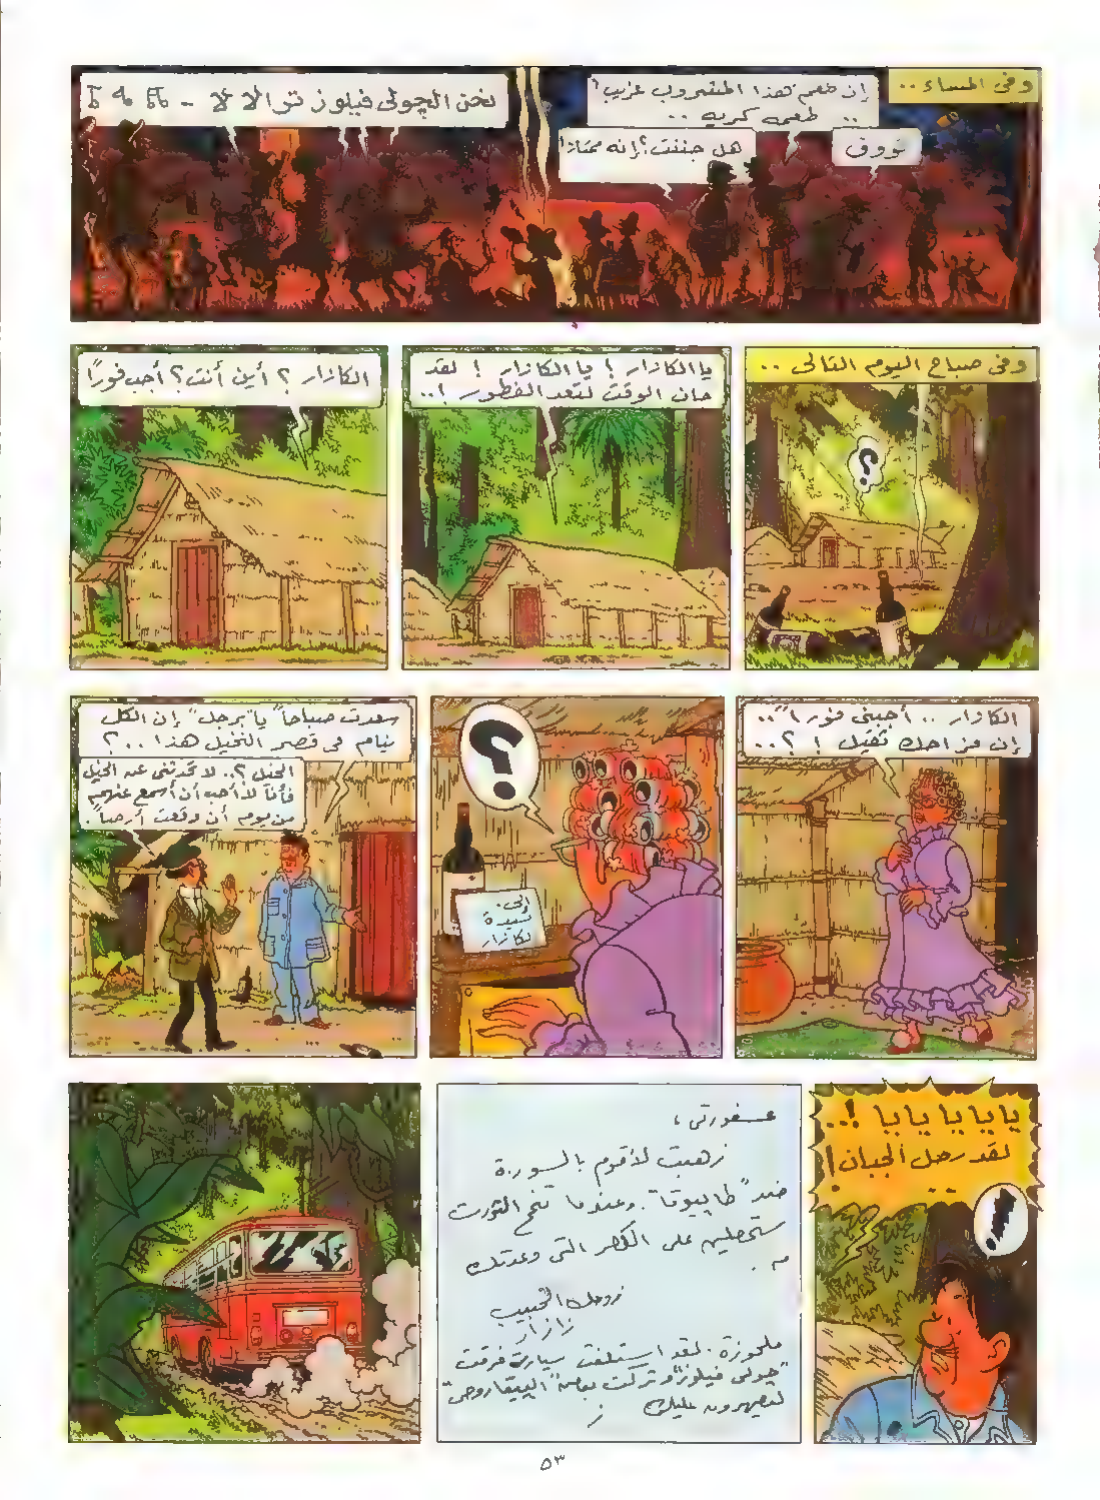 وفى المساء ..
إن طعم هذا المشروب غريب!
.. طعمه كريه ..
هل جننت؟ إنه ممتاز!
نحن الچولى فيلوز ترالا لا -
وفى صباح اليوم التالى ..
؟
يا الكازار ! يا الكازار ! لقد
حان الوقت لتعد الفطور !..
الكازار ؟ أين أنت؟ أجب فورًا
الكازار .. أجبنى فورًا ..
إن مزاحك ثقيل ! ؟..
؟
إلى
سيدة
الكازار
سعدت صباحاً يا "برجل" إن الكل
نيام فى قصر النخيل هذا ..؟
الخيل ؟.. لا تحدثنى عن الخيل
فأنا لا أحب أن أسمع عنهم
من يوم أن وقعت أرضاً .
يا يا يا يا يا !..
لقد رحل الجبان !
!
عصفورتى ،
ذهبت لأقوم بالثورة
ضد "طابيوقا" وعندما تنجح الثورة
ستحصلين على القصر التى وعدتك
به .
زوجك الحبيب
ملحوظة . لقد استلفت سيارة فرقت
"چولى فيلوز" وتركت بعض "البيقاروس"
ليسهرون عليك
٥٣